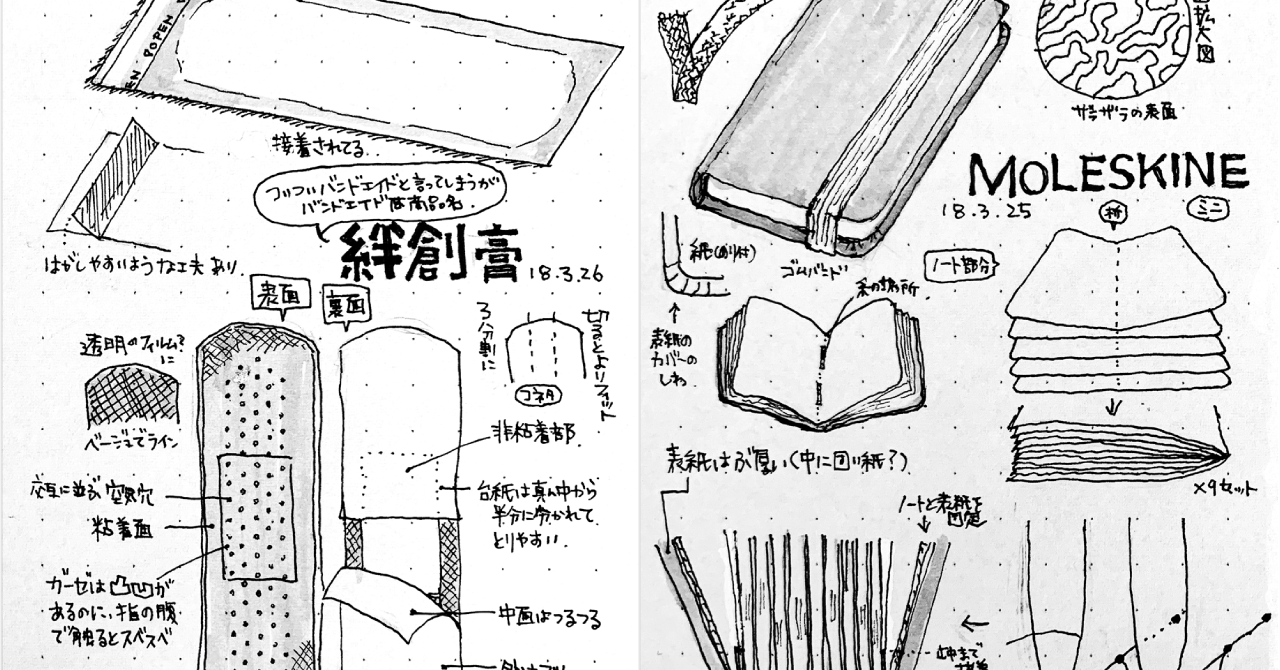 OPEN
接着されてる
ついついバンドエイドと言ってしまうが
バンドエイドは商品名.
絆創膏
18.3.26
はがしやすいような工夫あり.
表面
裏面
透明のフィルム?に
ベージュでライン
3分割に
切るとよりフィット
コネタ
非粘着部.
交互に並ぶ空気穴
粘着面
台紙は真ん中から
半分に分かれてて
とりやすい.
ガーゼは凸凹が
あるのに、指の腹
で触るとスベスベ
中面はつるつる
拡大図
ザラザラの表面
MOLESKINE
18.3.25
紙(のり付)
ゴムバンド
ノート部分
折
ミニ
糸の場所.
表紙の
カバーの
しわ.
表紙はぶ厚い(中に固い紙?)
×9セット
ノートと表紙を
固定